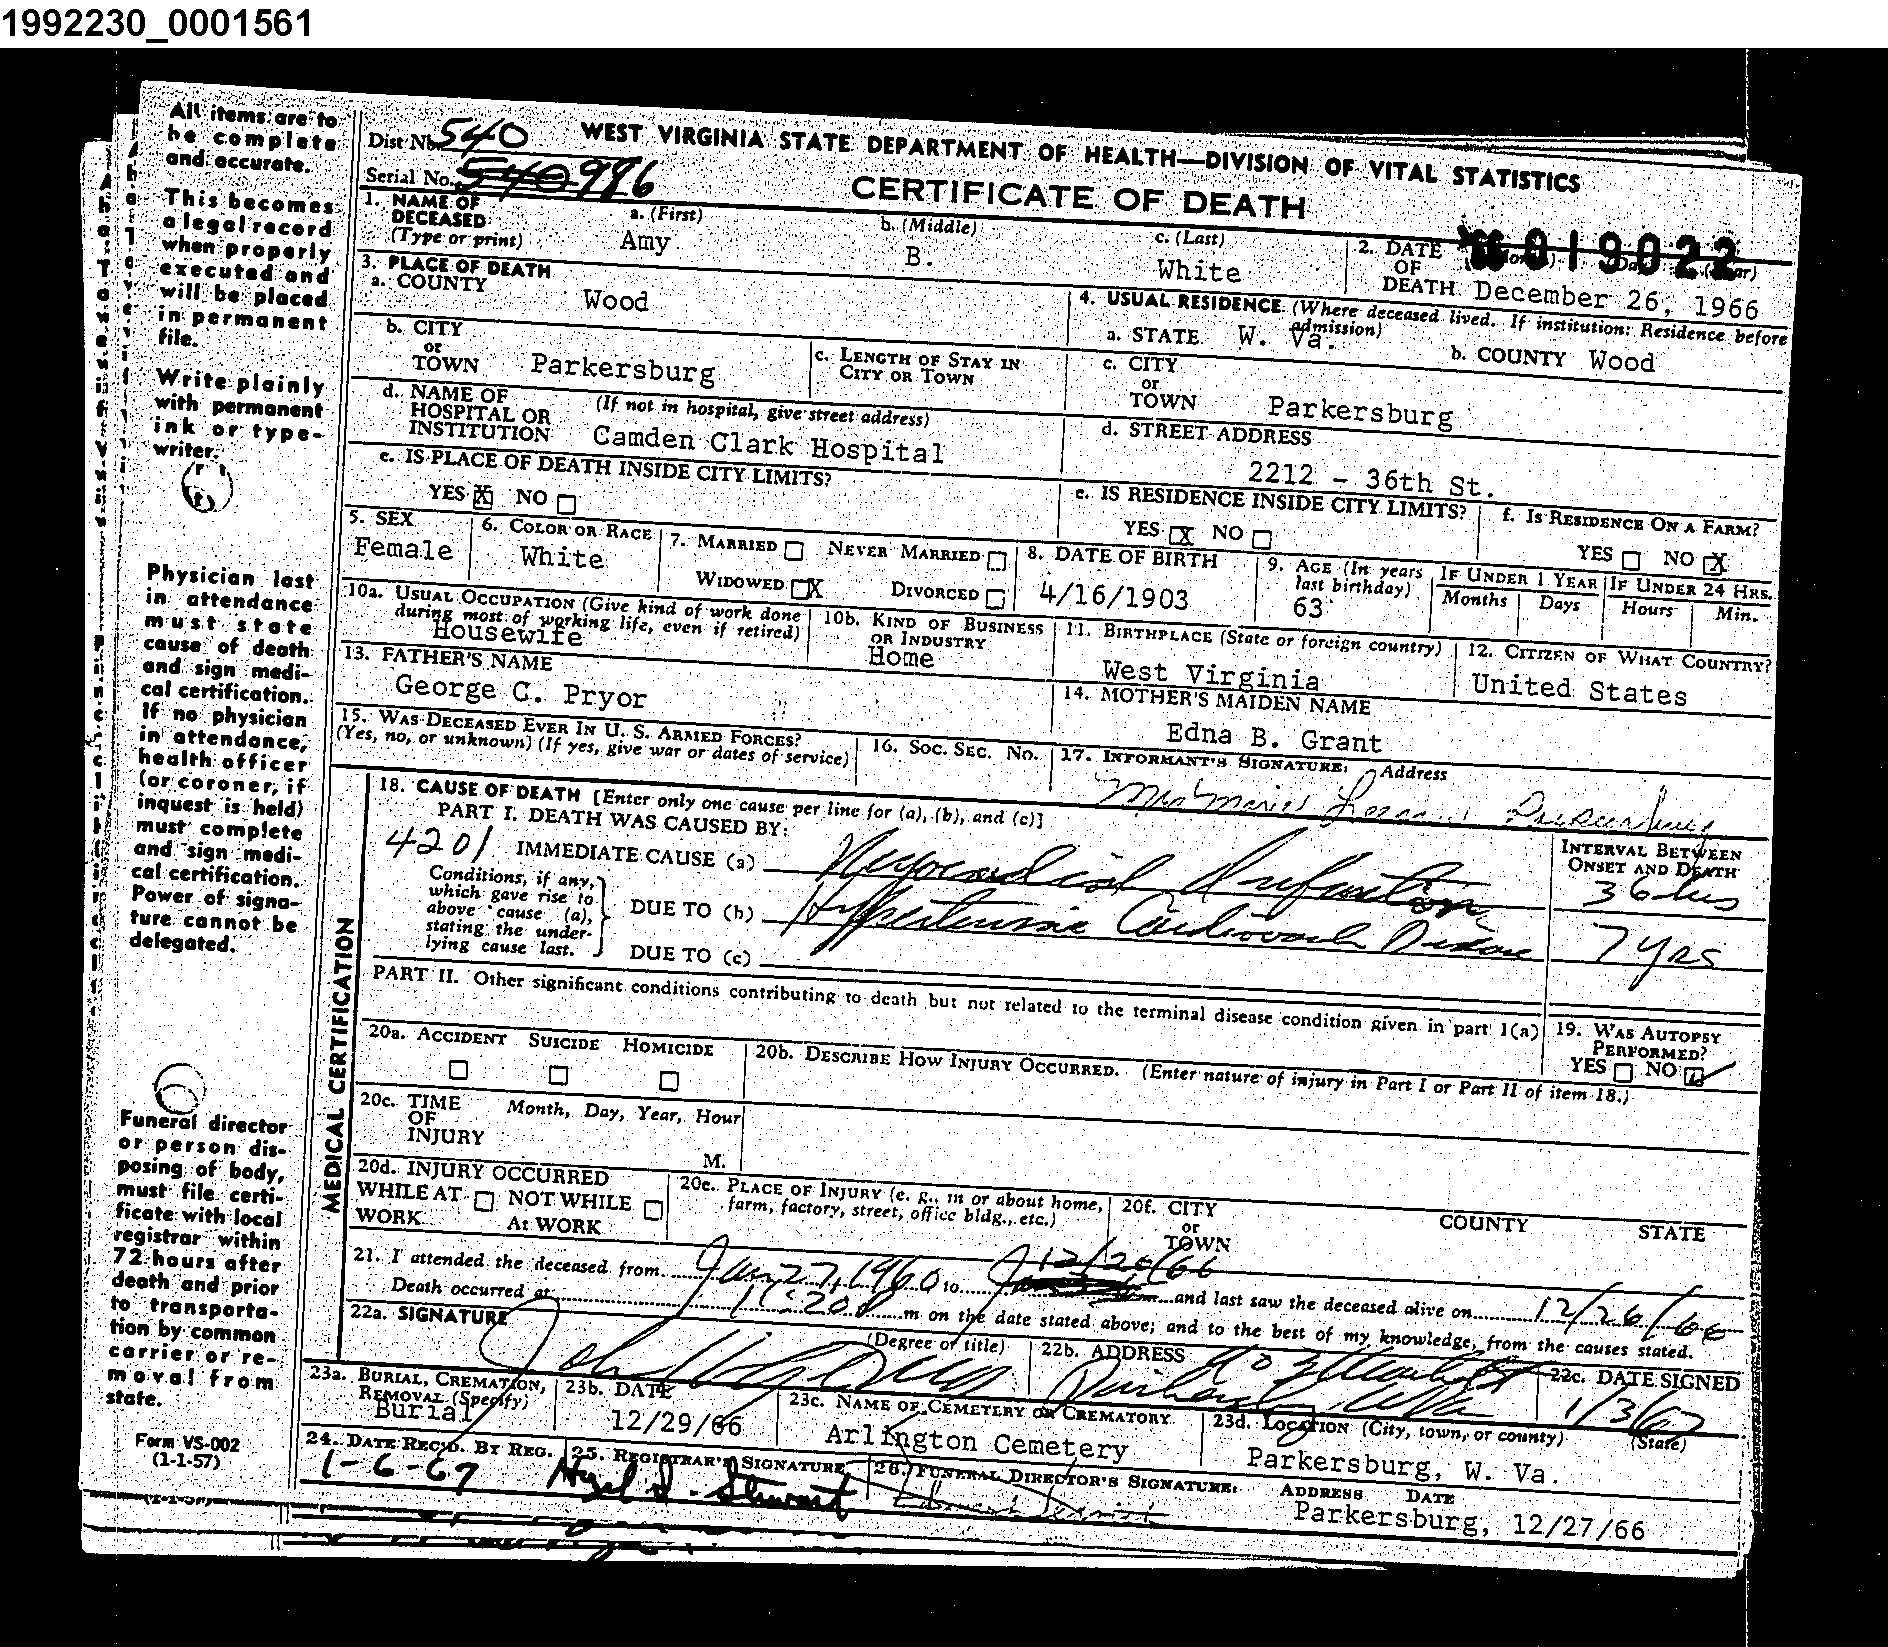 1992230_0001561
All items are to be complete and accurate.
This becomes a legal record when properly executed and will be placed in permanent file.
Write plainly with permanent ink or typewriter.
Physician last in attendance must state cause of death and sign medical certification. If no physician in attendance, health officer (or coroner, if inquest is held) must complete and sign medical certification. Power of signature cannot be delegated.
Funeral director or person disposing of body, must file certificate with local registrar within 72 hours after death and prior to transportation by common carrier or removal from state.
Form VS-002
(1-1-57)
Dist No. 540 WEST VIRGINIA STATE DEPARTMENT OF HEALTH—DIVISION OF VITAL STATISTICS
Serial No. 540 986 CERTIFICATE OF DEATH
019022
1. NAME OF DECEASED (Type or print) a. (First) Amy b. (Middle) B. c. (Last) White
2. DATE OF DEATH December 26, 1966
3. PLACE OF DEATH
a. COUNTY Wood
4. USUAL RESIDENCE (Where deceased lived. If institution: Residence before admission)
a. STATE W. Va. b. COUNTY Wood
b. CITY or TOWN Parkersburg c. LENGTH OF STAY IN CITY OR TOWN
c. CITY or TOWN Parkersburg
d. NAME OF HOSPITAL OR INSTITUTION (If not in hospital, give street address) Camden Clark Hospital
d. STREET ADDRESS 2212 - 36th St.
e. IS PLACE OF DEATH INSIDE CITY LIMITS? YES X NO
e. IS RESIDENCE INSIDE CITY LIMITS? YES X NO
f. IS RESIDENCE ON A FARM? YES NO X
5. SEX Female
6. COLOR OR RACE White
7. MARRIED NEVER MARRIED WIDOWED X DIVORCED
8. DATE OF BIRTH 4/16/1903
9. AGE (In years last birthday) 63 IF UNDER 1 YEAR Months Days IF UNDER 24 HRS. Hours Min.
10a. USUAL OCCUPATION (Give kind of work done during most of working life, even if retired) Housewife
10b. KIND OF BUSINESS OR INDUSTRY Home
11. BIRTHPLACE (State or foreign country) West Virginia
12. CITIZEN OF WHAT COUNTRY? United States
13. FATHER'S NAME George C. Pryor
14. MOTHER'S MAIDEN NAME Edna B. Grant
15. WAS DECEASED EVER IN U. S. ARMED FORCES? (Yes, no, or unknown) (If yes, give war or dates of service)
16. SOC. SEC. No.
17. INFORMANT'S SIGNATURE: Address
MEDICAL CERTIFICATION
18. CAUSE OF DEATH [Enter only one cause per line for (a), (b), and (c)]
PART I. DEATH WAS CAUSED BY:
INTERVAL BETWEEN ONSET AND DEATH
4201 IMMEDIATE CAUSE (a) Myocardial Infarction 36 hrs
Conditions, if any, which gave rise to above cause (a), stating the underlying cause last.
DUE TO (b) Hypertensive Cardiovasc Disease 7 yrs
DUE TO (c)
PART II. Other significant conditions contributing to death but not related to the terminal disease condition given in part I(a)
19. WAS AUTOPSY PERFORMED? YES NO
20a. ACCIDENT SUICIDE HOMICIDE
20b. DESCRIBE HOW INJURY OCCURRED. (Enter nature of injury in Part I or Part II of item 18.)
20c. TIME OF INJURY Month, Day, Year, Hour M.
20d. INJURY OCCURRED WHILE AT WORK NOT WHILE AT WORK
20e. PLACE OF INJURY (e. g., in or about home, farm, factory, street, office bldg., etc.)
20f. CITY or TOWN COUNTY STATE
21. I attended the deceased from Jan 27, 1960 to 12/26/66 and last saw the deceased alive on 12/26/66
Death occurred at 11:20 m on the date stated above; and to the best of my knowledge, from the causes stated.
22a. SIGNATURE (Degree or title) John
22b. ADDRESS
22c. DATE SIGNED 1/3/67
23a. BURIAL, CREMATION, REMOVAL (Specify) Burial
23b. DATE 12/29/66
23c. NAME OF CEMETERY OR CREMATORY Arlington Cemetery
23d. LOCATION (City, town, or county) (State) Parkersburg, W. Va.
24. DATE REC'D. BY REG. 1-6-67
25. REGISTRAR'S SIGNATURE Hazel S. Stewart
26. FUNERAL DIRECTOR'S SIGNATURE: ADDRESS DATE
Parkersburg, 12/27/66